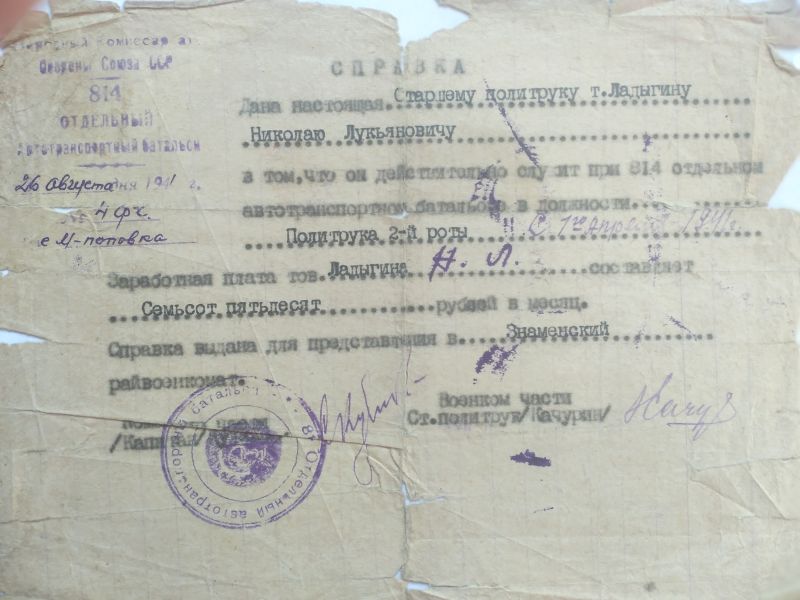 Народный Комиссариат
Обороны Союза ССР
814
ОТДЕЛЬНЫЙ
Автотранспортный батальон
26 Августа дня 1941 г.
№ 4 фч.
с М-поповка
СПРАВКА
Дана настоящая Старшему политруку т.Ладыгину
Николаю Лукьяновичу
в том,что он действительно служит при 814 отдельном
автотранспортном батальоне в должности
Политрука 2-й роты с 1го Апреля 1941г.
Заработная плата тов. Ладыгина Н. Л. составляет
Семьсот пятьдесят рублей в месяц.
Справка выдана для представления в Знаменский
райвоенкомат.
части
/Капитан/
Военком части
Ст.политрук/Качурин/
Отдельный автотранспортный батальон